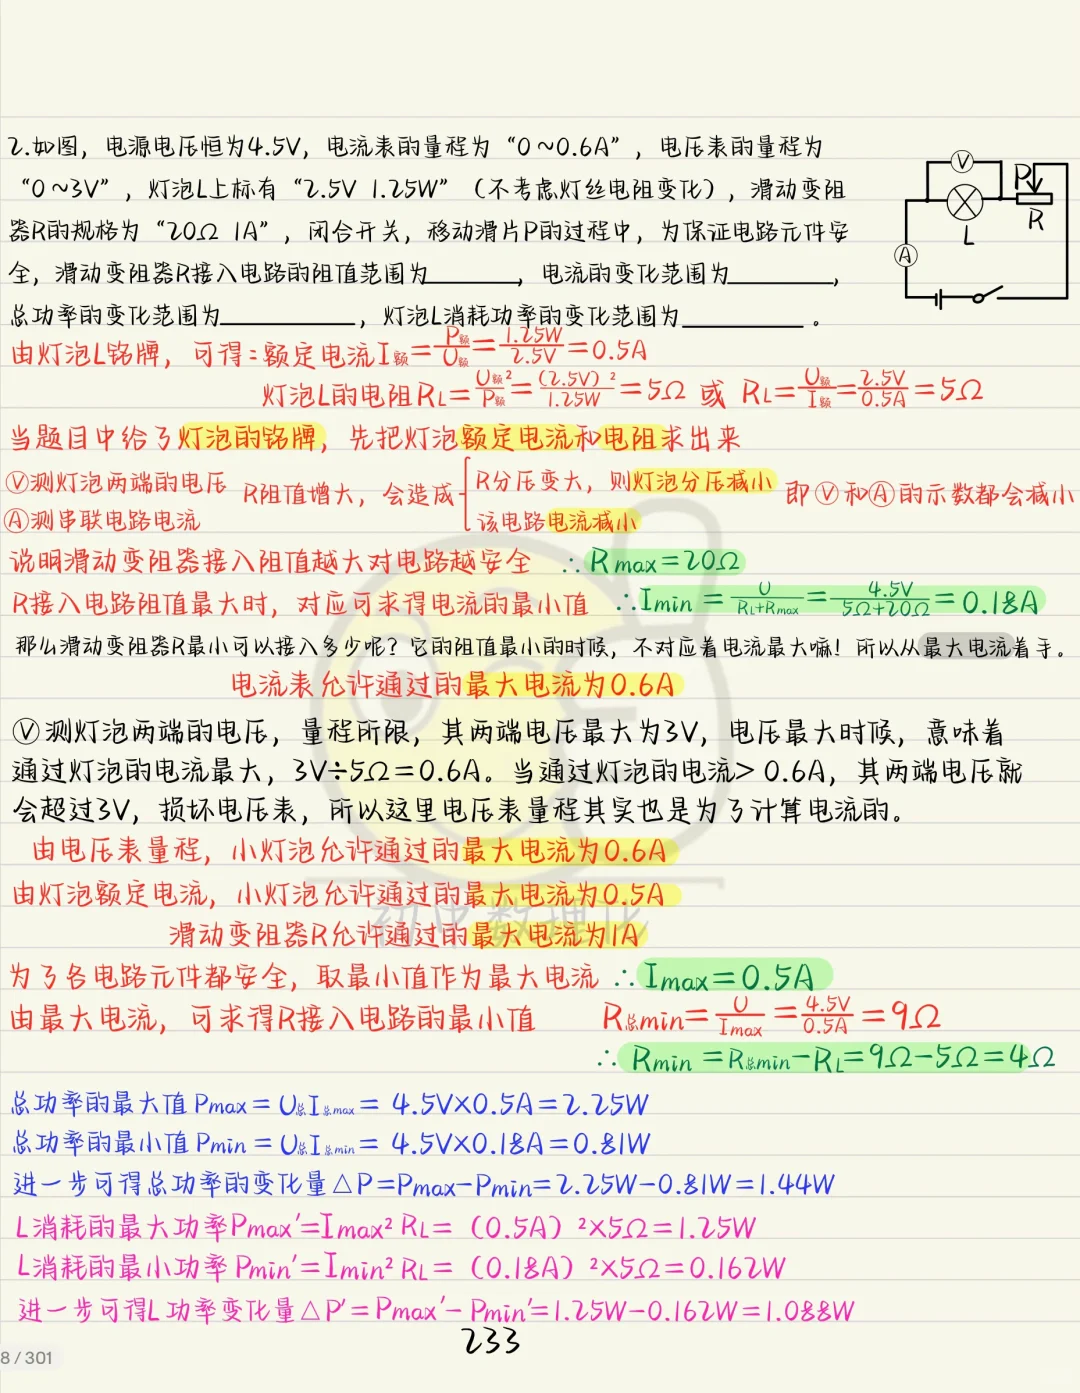 2.如图，电源电压恒为4.5V，电流表的量程为“0～0.6A”，电压表的量程为
“0～3V”，灯泡L上标有“2.5V 1.25W”（不考虑灯丝电阻变化），滑动变阻
器R的规格为“20Ω 1A”，闭合开关，移动滑片P的过程中，为保证电路元件安
全，滑动变阻器R接入电路的阻值范围为________，电流的变化范围为________，
总功率的变化范围为________，灯泡L消耗功率的变化范围为________。
V
P
L
R
A
由灯泡L铭牌，可得：额定电流I额=P额/U额=1.25W/2.5V=0.5A
灯泡L的电阻RL=U额²/P额=(2.5V)²/1.25W=5Ω 或 RL=U额/I额=2.5V/0.5A=5Ω
当题目中给了灯泡的铭牌，先把灯泡额定电流和电阻求出来
Ⓥ测灯泡两端的电压
Ⓐ测串联电路电流
R阻值增大，会造成
R分压变大，则灯泡分压减小
该电路电流减小
即Ⓥ和Ⓐ的示数都会减小
说明滑动变阻器接入阻值越大对电路越安全 ∴Rmax=20Ω
R接入电路阻值最大时，对应可求得电流的最小值 ∴Imin=U/(RL+Rmax)=4.5V/(5Ω+20Ω)=0.18A
那么滑动变阻器R最小可以接入多少呢？它的阻值最小的时候，不对应着电流最大嘛！所以从最大电流着手。
电流表允许通过的最大电流为0.6A
Ⓥ测灯泡两端的电压，量程所限，其两端电压最大为3V，电压最大时候，意味着
通过灯泡的电流最大，3V÷5Ω=0.6A。当通过灯泡的电流>0.6A，其两端电压就
会超过3V，损坏电压表，所以这里电压表量程其实也是为了计算电流的。
由电压表量程，小灯泡允许通过的最大电流为0.6A
由灯泡额定电流，小灯泡允许通过的最大电流为0.5A
初中数理化
滑动变阻器R允许通过的最大电流为1A
为了各电路元件都安全，取最小值作为最大电流 ∴Imax=0.5A
由最大电流，可求得R接入电路的最小值 R总min=U/Imax=4.5V/0.5A=9Ω
∴Rmin=R总min-RL=9Ω-5Ω=4Ω
总功率的最大值Pmax=U总I总max=4.5V×0.5A=2.25W
总功率的最小值Pmin=U总I总min=4.5V×0.18A=0.81W
进一步可得总功率的变化量△P=Pmax-Pmin=2.25W-0.81W=1.44W
L消耗的最大功率Pmax′=Imax²RL=（0.5A）²×5Ω=1.25W
L消耗的最小功率Pmin′=Imin²RL=（0.18A）²×5Ω=0.162W
进一步可得L功率变化量△P′=Pmax′-Pmin′=1.25W-0.162W=1.088W
233
8/301